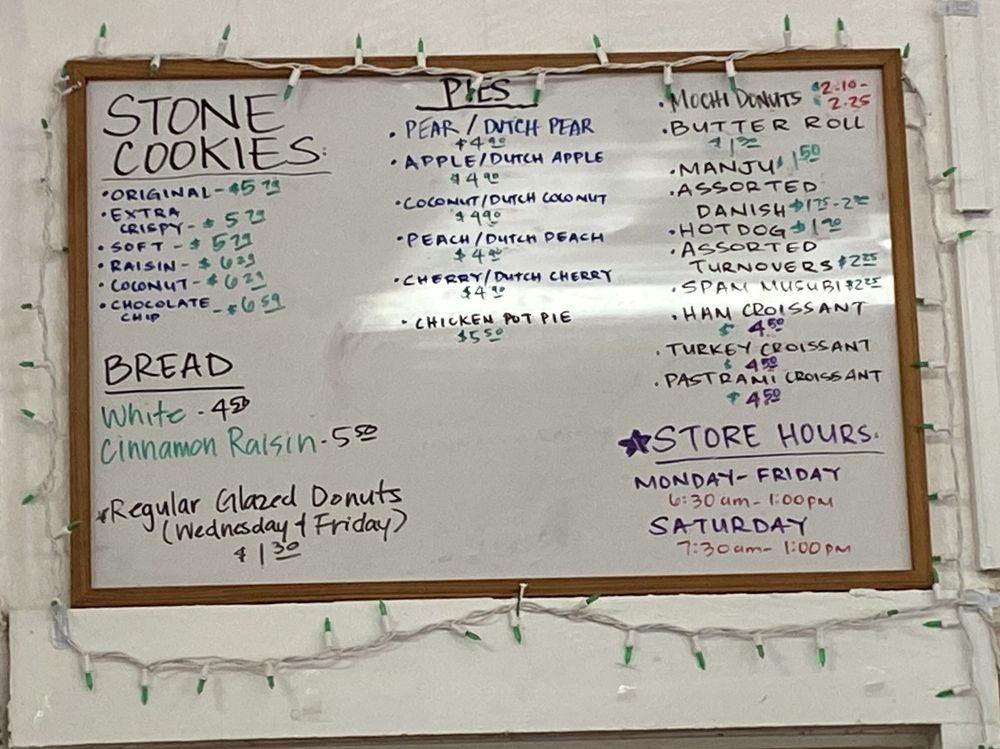 STONE
COOKIES:
• ORIGINAL - $5 79
• EXTRA
CRISPY - $ 5 79
• SOFT - $ 5 79
• RAISIN - $ 6 29
• COCONUT - $ 6 29
• CHOCOLATE - $ 6 59
CHIP
BREAD
White - 4 50
Cinnamon Raisin - 5 50
*Regular Glazed Donuts
(Wednesday + Friday)
$ 1 30
PIES
• PEAR / DUTCH PEAR
$4 90
• APPLE/DUTCH APPLE
$4 90
• COCONUT/DUTCH COCONUT
$4 90
• PEACH/DUTCH PEACH
$4 90
• CHERRY/DUTCH CHERRY
$4 90
• CHICKEN POT PIE
$5 50
• MOCHI DONUTS $2.10-
$2.25
• BUTTER ROLL
• MANJU $1 50
• ASSORTED
DANISH $1 75 - 2
• HOT DOG $1 90
• ASSORTED
TURNOVERS $2 25
• SPAM MUSUBI $2 25
• HAM CROISSANT
$ 4 50
• TURKEY CROISSANT
$ 4 50
• PASTRAMI CROISSANT
$ 4 50
★ STORE HOURS:
MONDAY - FRIDAY
6:30 am - 1:00 pm
SATURDAY
7:30 am - 1:00 pm